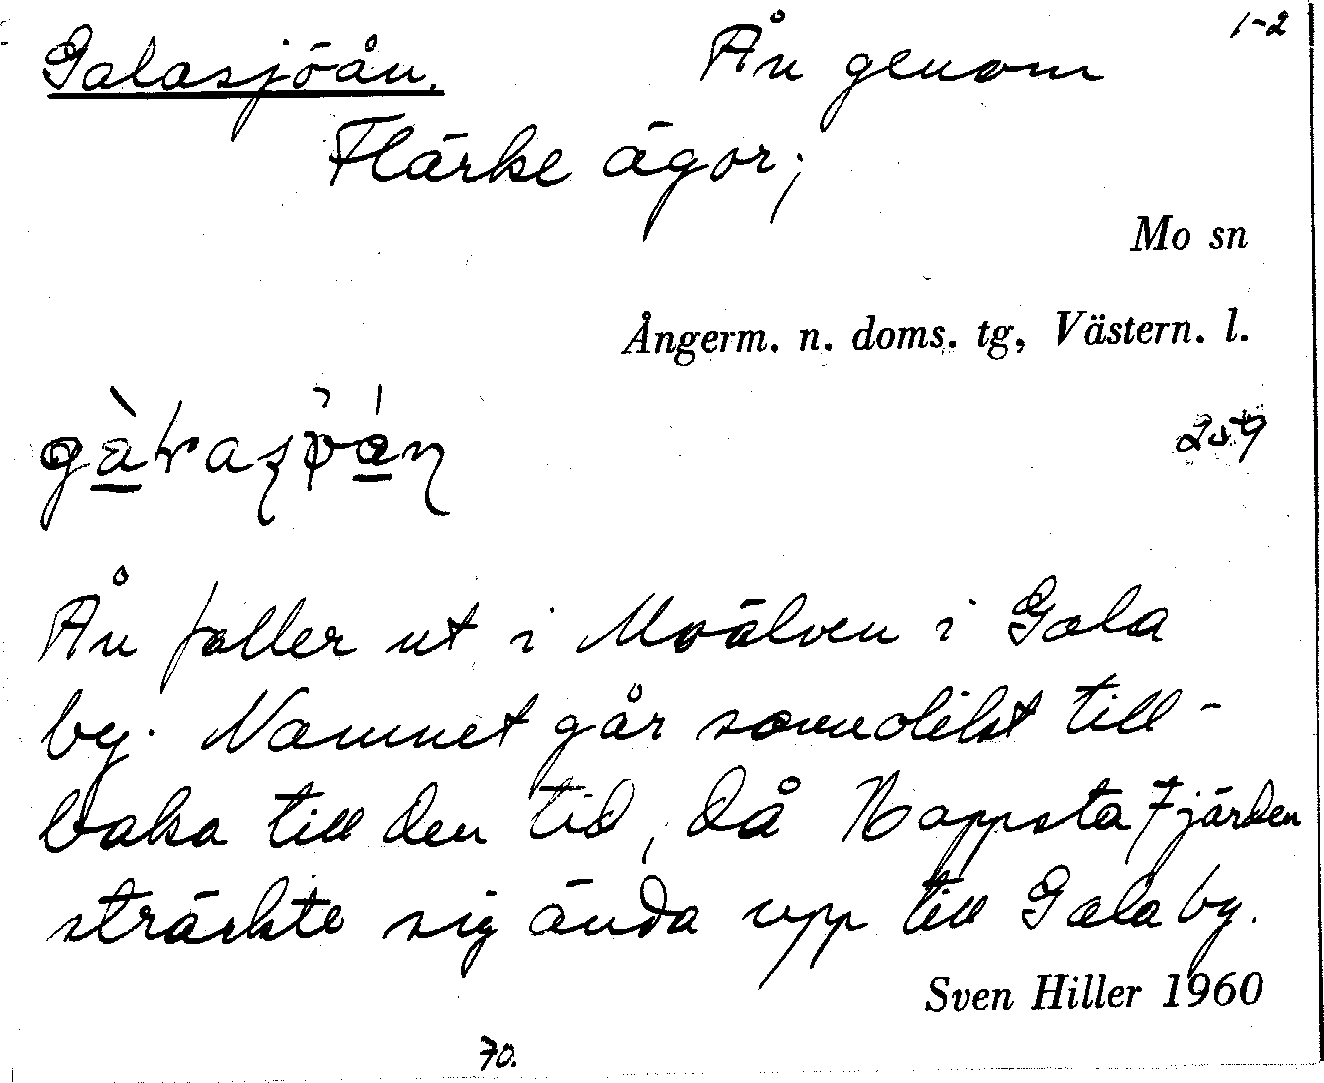 1-2
Galasjöån. Ån genom
Flärke ägor;
Mo sn
Ångerm. n. doms. tg, Västern. l.
259
Ån faller ut i Moälven i Gala
by. Namnet går sannolikt till-
baka till den tid, då Happsta Fjärden
sträckte sig ända upp till Gala by.
Sven Hiller 1960
70.